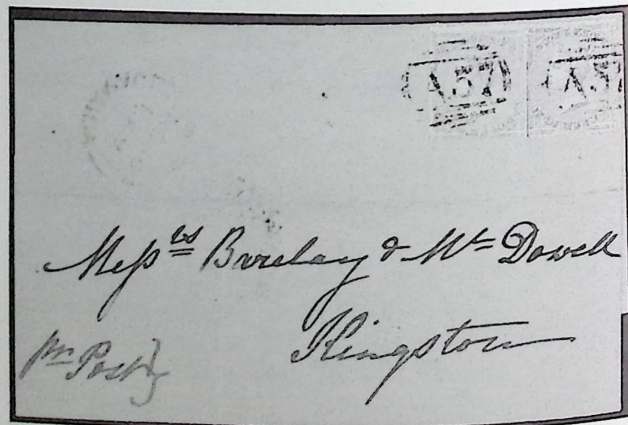 A57 A57
Mess<sup>rs</sup> Barclay & Mc Dowell
Kingston
per Post